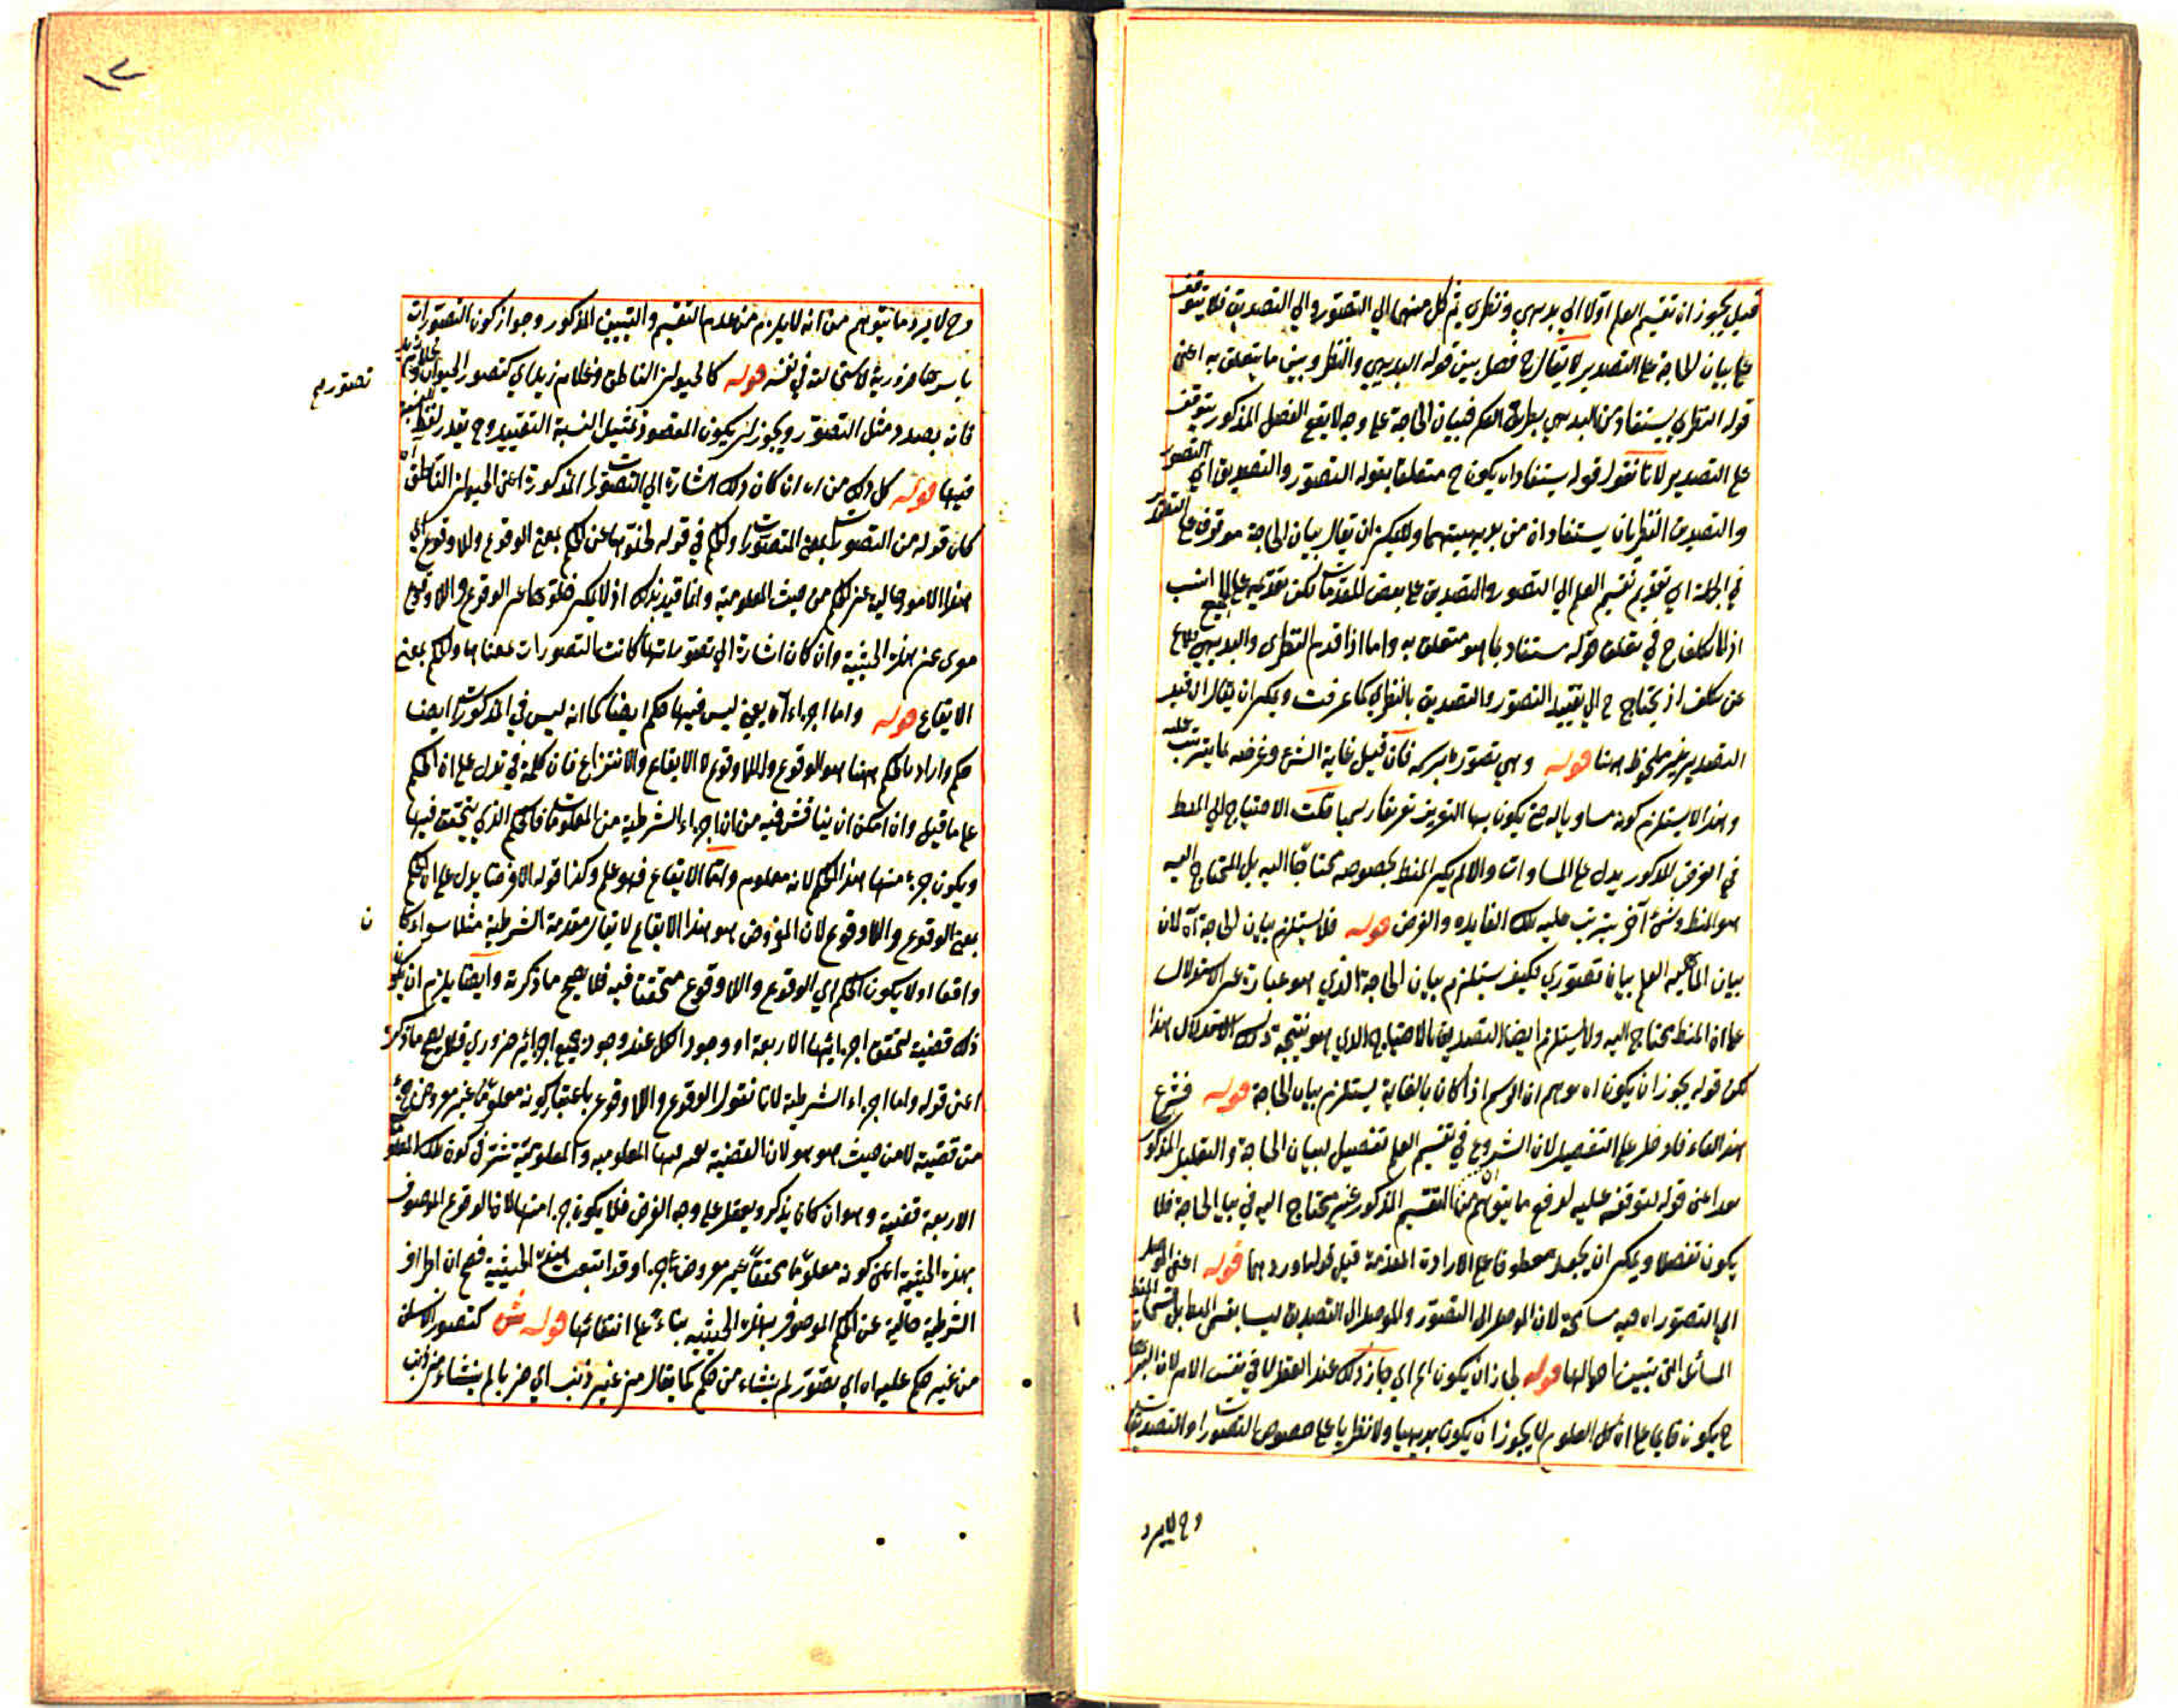 قيل يجوز ان تقسيم العلم اولا الى بديهي ونظري ثم كل منهما الى التصور والى التصديق فلا يتوقف
على بيان الحاجة على التصدير لا يقال ح فصل بين قوله البديهي والنظر وبين ما يتعلق به اعني
قوله النظري يستفاد من البديهي بطريق الفكر فبيان الحاجة على وجه لا يقع الفصل المذكور يتوقف
على التصدير لانا نقول قوله يستفاد ان يكون ح متعلقا بقوله التصور والتصديق اي التصور
والتصديق النظريان يستفادان من بديهيتهما ولا يمكن ان يقال بيان الحاجة موقوف على التصدير
في الجملة اي تقديم تقسيم العلم الى التصور والتصديق على بعض المقدمات لكن تقديمه على الجميع انسب
اذ لا تكلف ح في تعلق قوله يستفاد بما هو متعلق به واما اذا قدم النظري والبديهي فلا
عن تكلف اذ يحتاج ح الى تقييد التصور والتصديق بالنظري كما عرفت ويمكن ان يقال ان قيد
التصدير غير ملحوظ هنا قوله وهي تصوره برسمه فان قيل غاية الشئ وغرضه ما يترتب عليه
وهذا لا يستلزم كونه مساويا له حتى يكون بها التعريف تعريفا رسميا قلت الاحتياج الى المنط
في الغرض المذكور يدل على المساوات والا لم يكن المنط بخصوصه محتاجا اليه بل المحتاج اليه
هو المنط وشئ آخر يترتب عليه تلك الفايده والغرض قوله فلا يستلزم بيان الحاجة آه لان
بيان الماهيه العلم بيان تصوري فكيف يستلزم بيان الحاجة الذي هو عبارة عن الاستدلال
على ان المنط محتاج اليه ولا يستلزم ايضا التصديق بالاحتياج الذي هو نتيجة ذلك الاستدلال هذا
لكن قوله يجوز ان يكون اه يوهم ان الرسم اذا كان بالغاية يستلزم بيان الحاجة قوله فشرع
هذا الفاء داخل على التفصيل لان الشروع في تقسيم العلم تفصيل لبيان الحاجة والتعليل المذكور
بعد اعني قوله لتوقفه عليه لدفع ما يتوهم من ان التقسيم المذكور غير محتاج اليه في بيان الحاجة فلا
يكون تفصيلا ويمكن ان يجعل معطوفا على الارادة المقدمة قبل قوله اوردهما قوله اعني الموصل
الى التصور اه فيه مسامحة لان الموصل الى التصور والموصل الى التصديق ليسا بقسمي المنط بل قسماه المنط
المسائل التي تبينت احوالها قوله لجاز ان يكون اه اي جاز ذلك عند العقل لا في نفس الامر لان البرهان
ح يكون قايما على ان كل العلوم لا يجوز ان يكون بديهيا ولا نظريا على خصوص التصورات والتصديقات
وح لا يرد
وح لا يرد ما يتوهم من انه لا يلزم من عدم التقسيم والتبيين المذكور وجواز كون التصورات
باسرها ضرورية لاستحالته في نفسه قوله كالحيوان الناطق وغلام زيد اي كتصور الحيوان وغلام زيد
تصوريه
فانه بصدد مثل التصور ويجوز ان يكون المقصود تمثيل النسبة التقييدي وح يقدر لفظ النسبة
فيها قوله كل ذلك من اه ان كان ذلك اشارة الى التصورات المذكورة اعني الحيوان الناطق آه
كان قوله من التصورات بمعنى المتصورات والحكم في قوله لخلوها عن الحكم بمعنى الوقوع واللاوقوع اي
هذه الامور خالية عن الحكم من حيث المعلومية وانما قيد بذلك اذ لا يمكن خلوها عن الوقوع واللاوقوع
سوى عن هذه الحيثية وان كان اشارة الى تصوراتها كانت التصورات بمعناها والحكم بمعنى
الايقاع قوله واما اجزاء اه يعني ليس فيها حكم ايضا كما انه ليس في المذكورات ايضا
حكم واراد بالحكم ههنا هو الوقوع واللاوقوع لا الايقاع والانتزاع فان كلمة في تدل على ان الحكم
على ما قيل وان امكن ان يناقش فيه من ان اجزاء الشرطية من المعلومات فالحكم الذي يتحقق فيها
ويكون جزء منها هذا الحكم لانه معلوم واما الايقاع فهو علم وكذا قوله الا فرضا يدل على ان الحكم
بمعنى الوقوع واللاوقوع لان المفروض هو هذا الايقاع لا يقال مقدمة الشرطية مثلا سواء كا
ن
واقعا اولا يكون الحكم اي الوقوع واللاوقوع متحققا فيه فلا يصح ما ذكرته وايضا يلزم ان يكون
ذلك قضية لتحقق اجزائها الاربعة او وجود الكل عند وجود جميع اجزائه ضروري فلا يصح ما ذكره
اعني قوله واما اجزاء الشرطية لانا نقول الوقوع واللاوقوع باعتبار كونه معلوما غير مفروض جزء
من قضية لا من حيث هو هو لان القضية
الاربعة قضية وهو ان كان يذكر ويعقل على وجه الفرض فلا يكون جزء منها لان الوقوع الموصوف
بهذه الحيثية اعني كونه معلوما محققا غير مفروض جزء وقد انتفت هذه الحيثية فصح ان اطراف
الشرطية خالية عن الحكم الموصوف بهذه الحيثيه بناء على انتفائها قوله ش كتصور الانسان
من غير حكم عليه اه اي تصور لم ينشاء من حكم كما يقال من غير ذنب اي ضربا لم ينشاء من ذنب